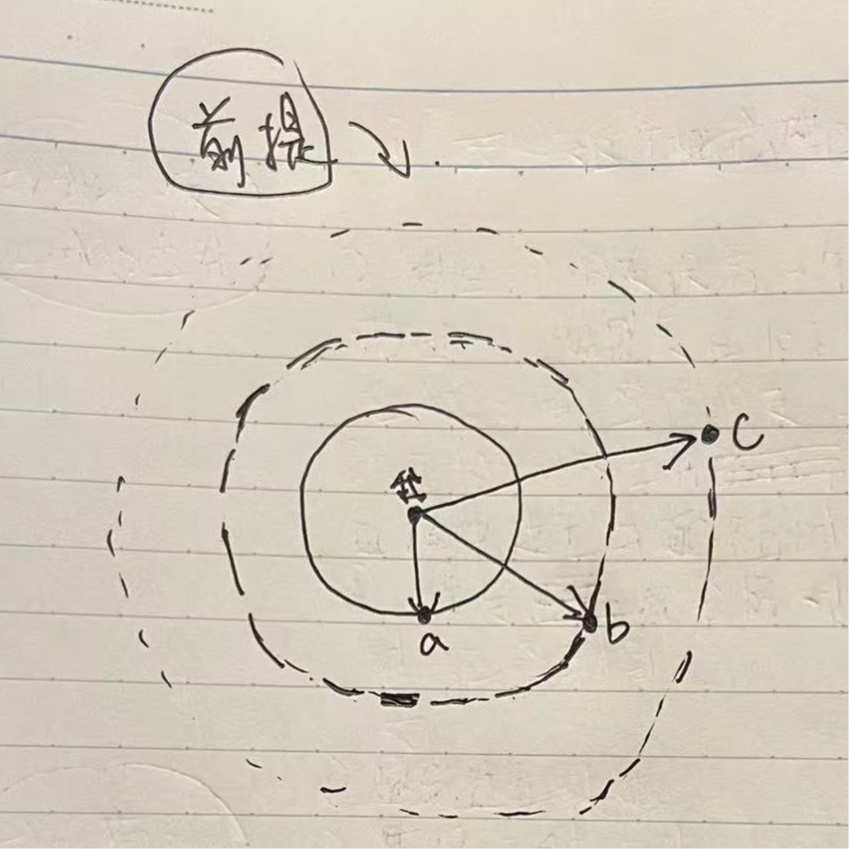 前提
私
a
b
c